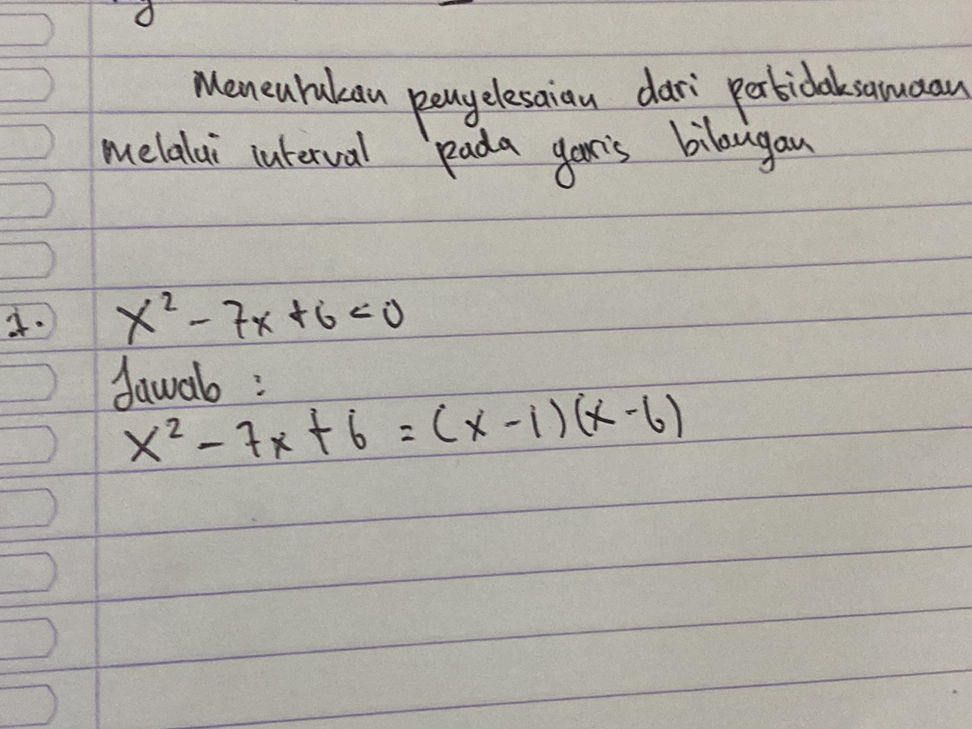 Menentukan penyelesaian dari pertidaksamaan
melalui interval pada garis bilangan
1. x² - 7x + 6 < 0
Jawab :
x² - 7x + 6 = (x - 1)(x - 6)